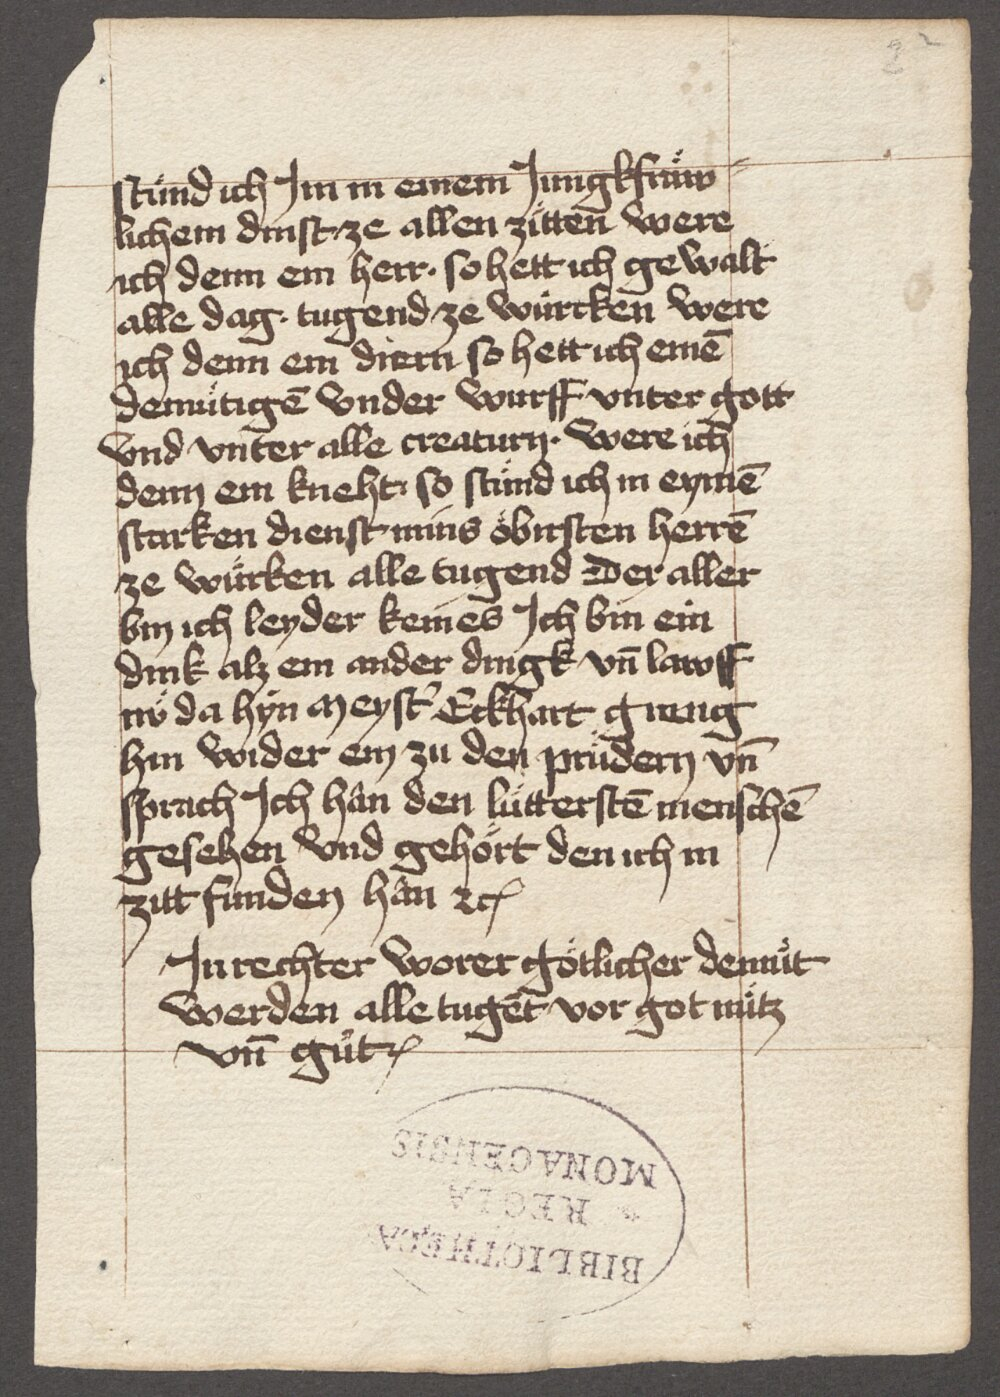 2
stuͤnd ich Im in einem Jungkfraͤw
lichem dinst ze allen zitten were
ich denn ein herr· so hett ich gewalt
alle dag· tugend ze wuͤrcken were
ich denn ein diern so hett ich einē
demuͤtigē vnder wurff vnter gott
vnd vnter alle creaturn· were ich
denn ein kneht· so stuͤnd ich in eymē
starken dienst mins oͤbirsten herrē
ze wuͤrken alle tugend Der aller
bin ich leyder keines Ich bin ein
dink alz ein ander dingk vn̄ lawff
nuͦ da hÿn Meyst' Eckhart grieng
hin wider ein zu den pruͤdern vn̄
sprach Ich hân den luͤtterstē menschē
gesehen vnd gehoͤrt den ich in
zitt funden hân ꝛc
In rechter worer goͤtlicher demuͤt
werden alle tugēt vor got nuͤtz
vn̄ guͦt
BIBLIOTHECA
REGIA
MONACENSIS